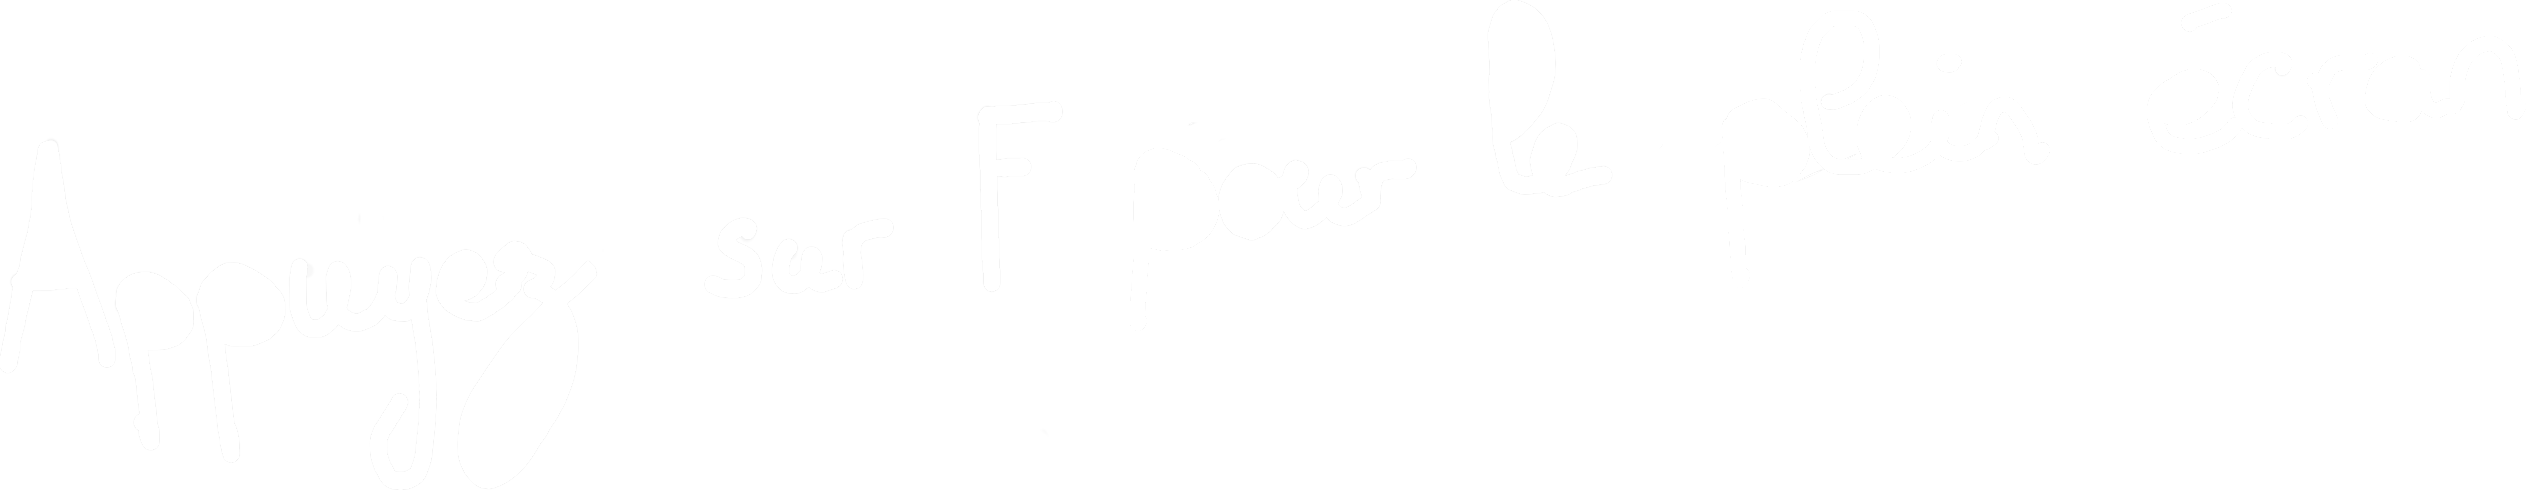 Appuyez sur F pour le plein écran